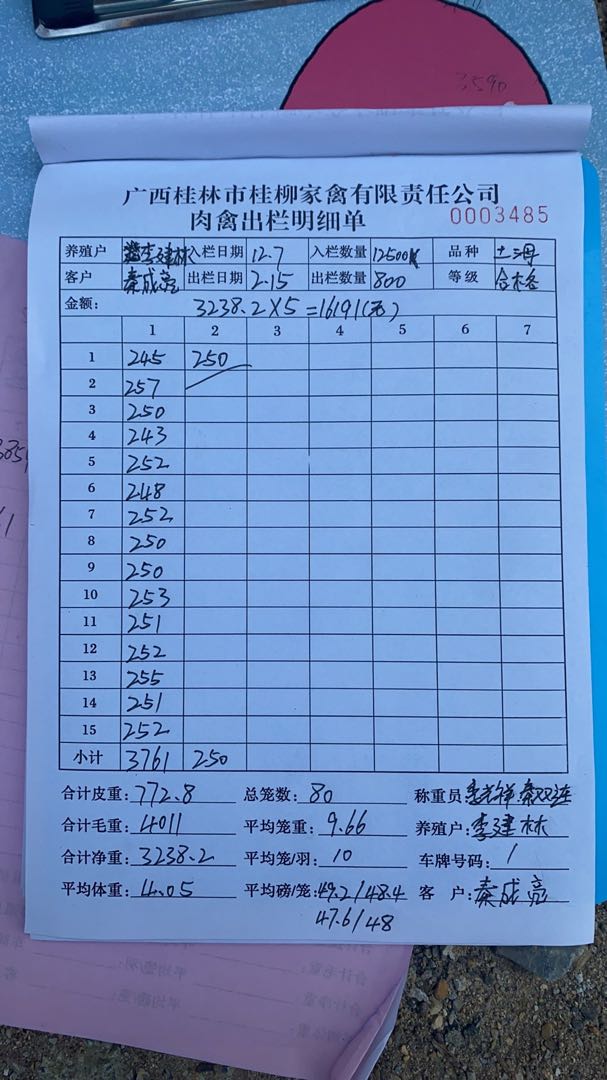 3590
广西桂林市桂柳家禽有限责任公司
肉禽出栏明细单 0003485
养殖户 李建林 入栏日期 12.7 入栏数量 12500 品种 土2号
客户 秦成亮 出栏日期 2.15 出栏数量 800 等级 合格
金额: 3238.2×5=16191(元)
1 2 3 4 5 6 7
1 245 250
2 257
3 250
4 243
5 252
6 248
7 252
8 250
9 250
10 253
11 251
12 252
13 255
14 251
15 252
小计 3761 250
合计皮重: 772.8 总笼数: 80 称重员:
合计毛重: 4011 平均笼重: 9.66 养殖户: 李建林
合计净重: 3238.2 平均笼/羽: 10 车牌号码: /
平均体重: 4.05 平均磅/笼: 49.2/48.4 客 户: 秦成亮
47.6/48